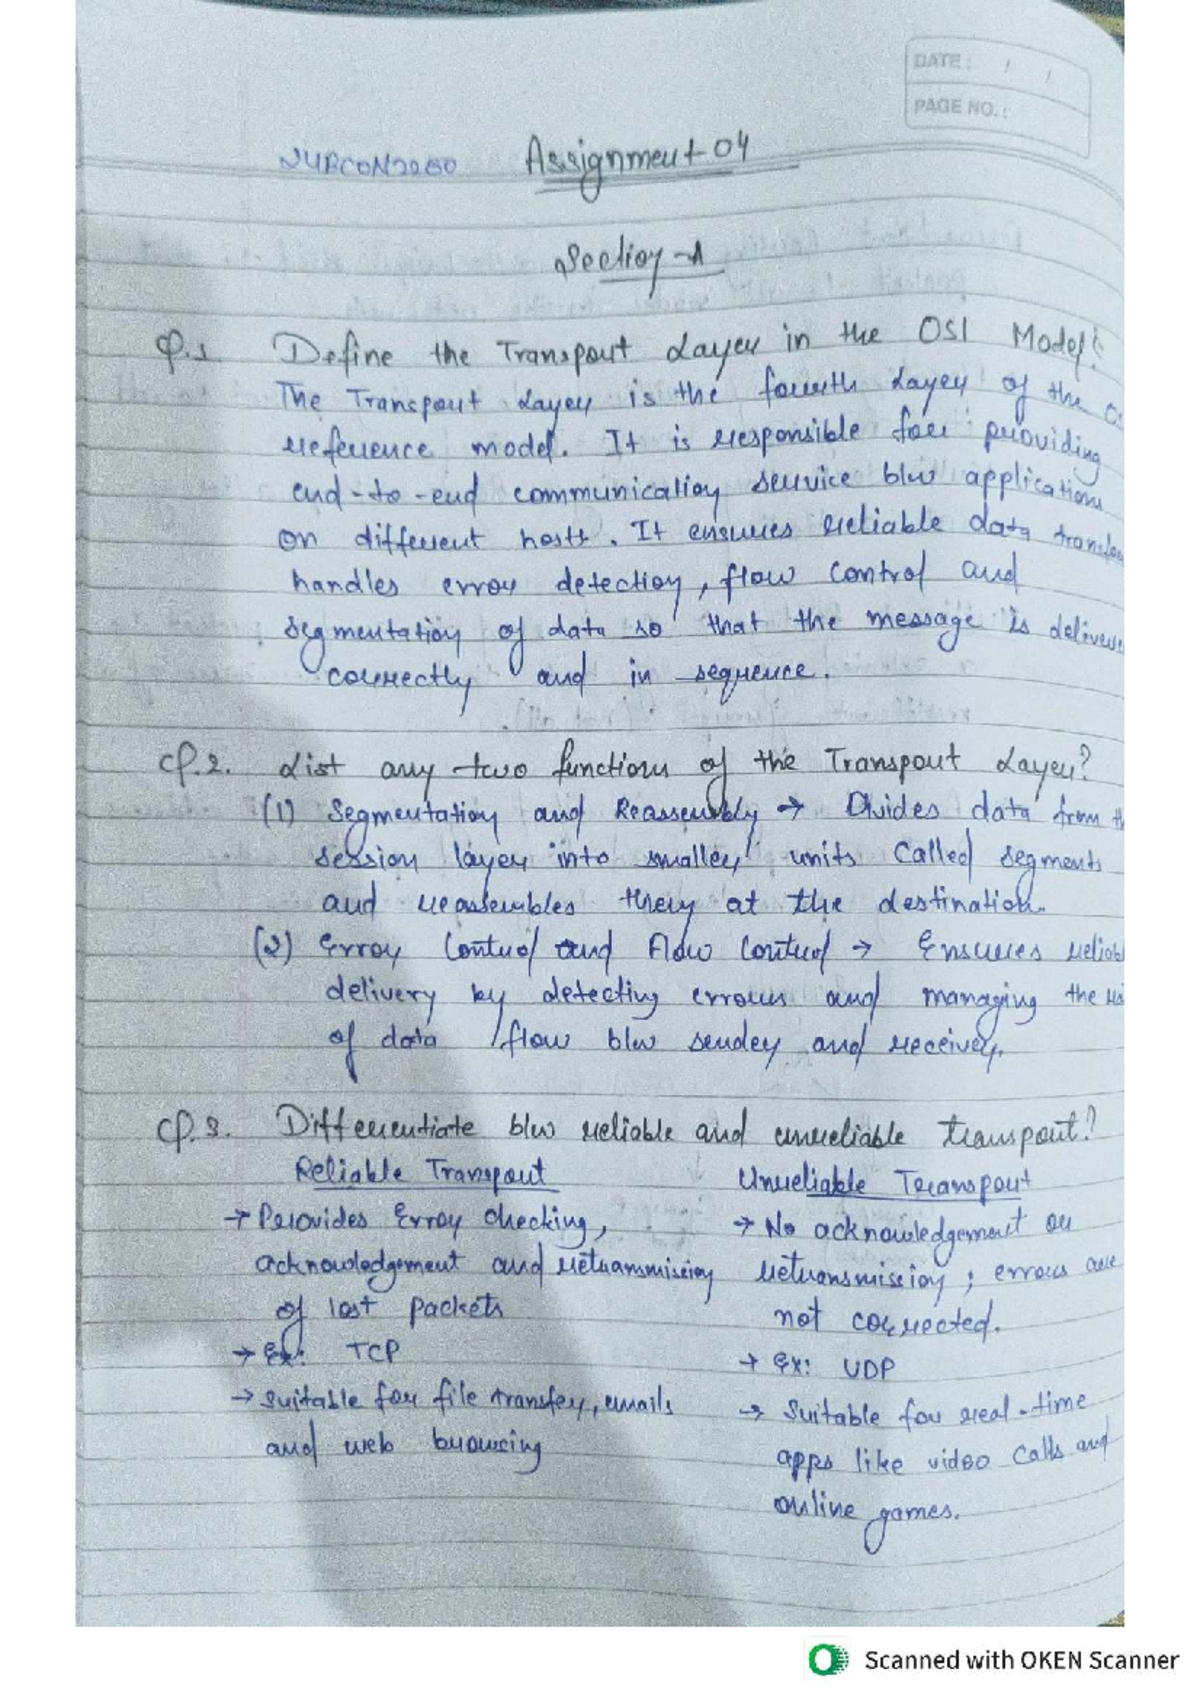 DATE: / /
PAGE NO.:
Assignment-04
Section-A
Q.1 Define the Transport Layer in the OSI Model?
The Transport Layer is the fourth Layer of the
reference model. It is responsible for providing
end-to-end communication service b/w applications
on different hosts. It ensures reliable data
handles error detection, flow control and
segmentation of data so that the message is
correctly and in sequence.
Q.2. List any two functions of the Transport Layer?
(1) Segmentation and Reassembly → Divides data from
session layer into smaller units called segments
and reassembles them at the destination.
(2) Error Control and Flow Control → Ensures
delivery by detecting errors and managing the
of data flow b/w sender and receiver.
Q.3. Differentiate b/w reliable and unreliable transport?
Reliable Transport
→ Provides Error checking,
acknowledgement and retransmission
of lost packets
→ Ex: TCP
→ Suitable for file transfer, emails
and web browsing
Unreliable Transport
→ No acknowledgement or
retransmission; errors are
not corrected.
→ Ex: UDP
→ Suitable for real-time
apps like video calls and
online games.
Scanned with OKEN Scanner